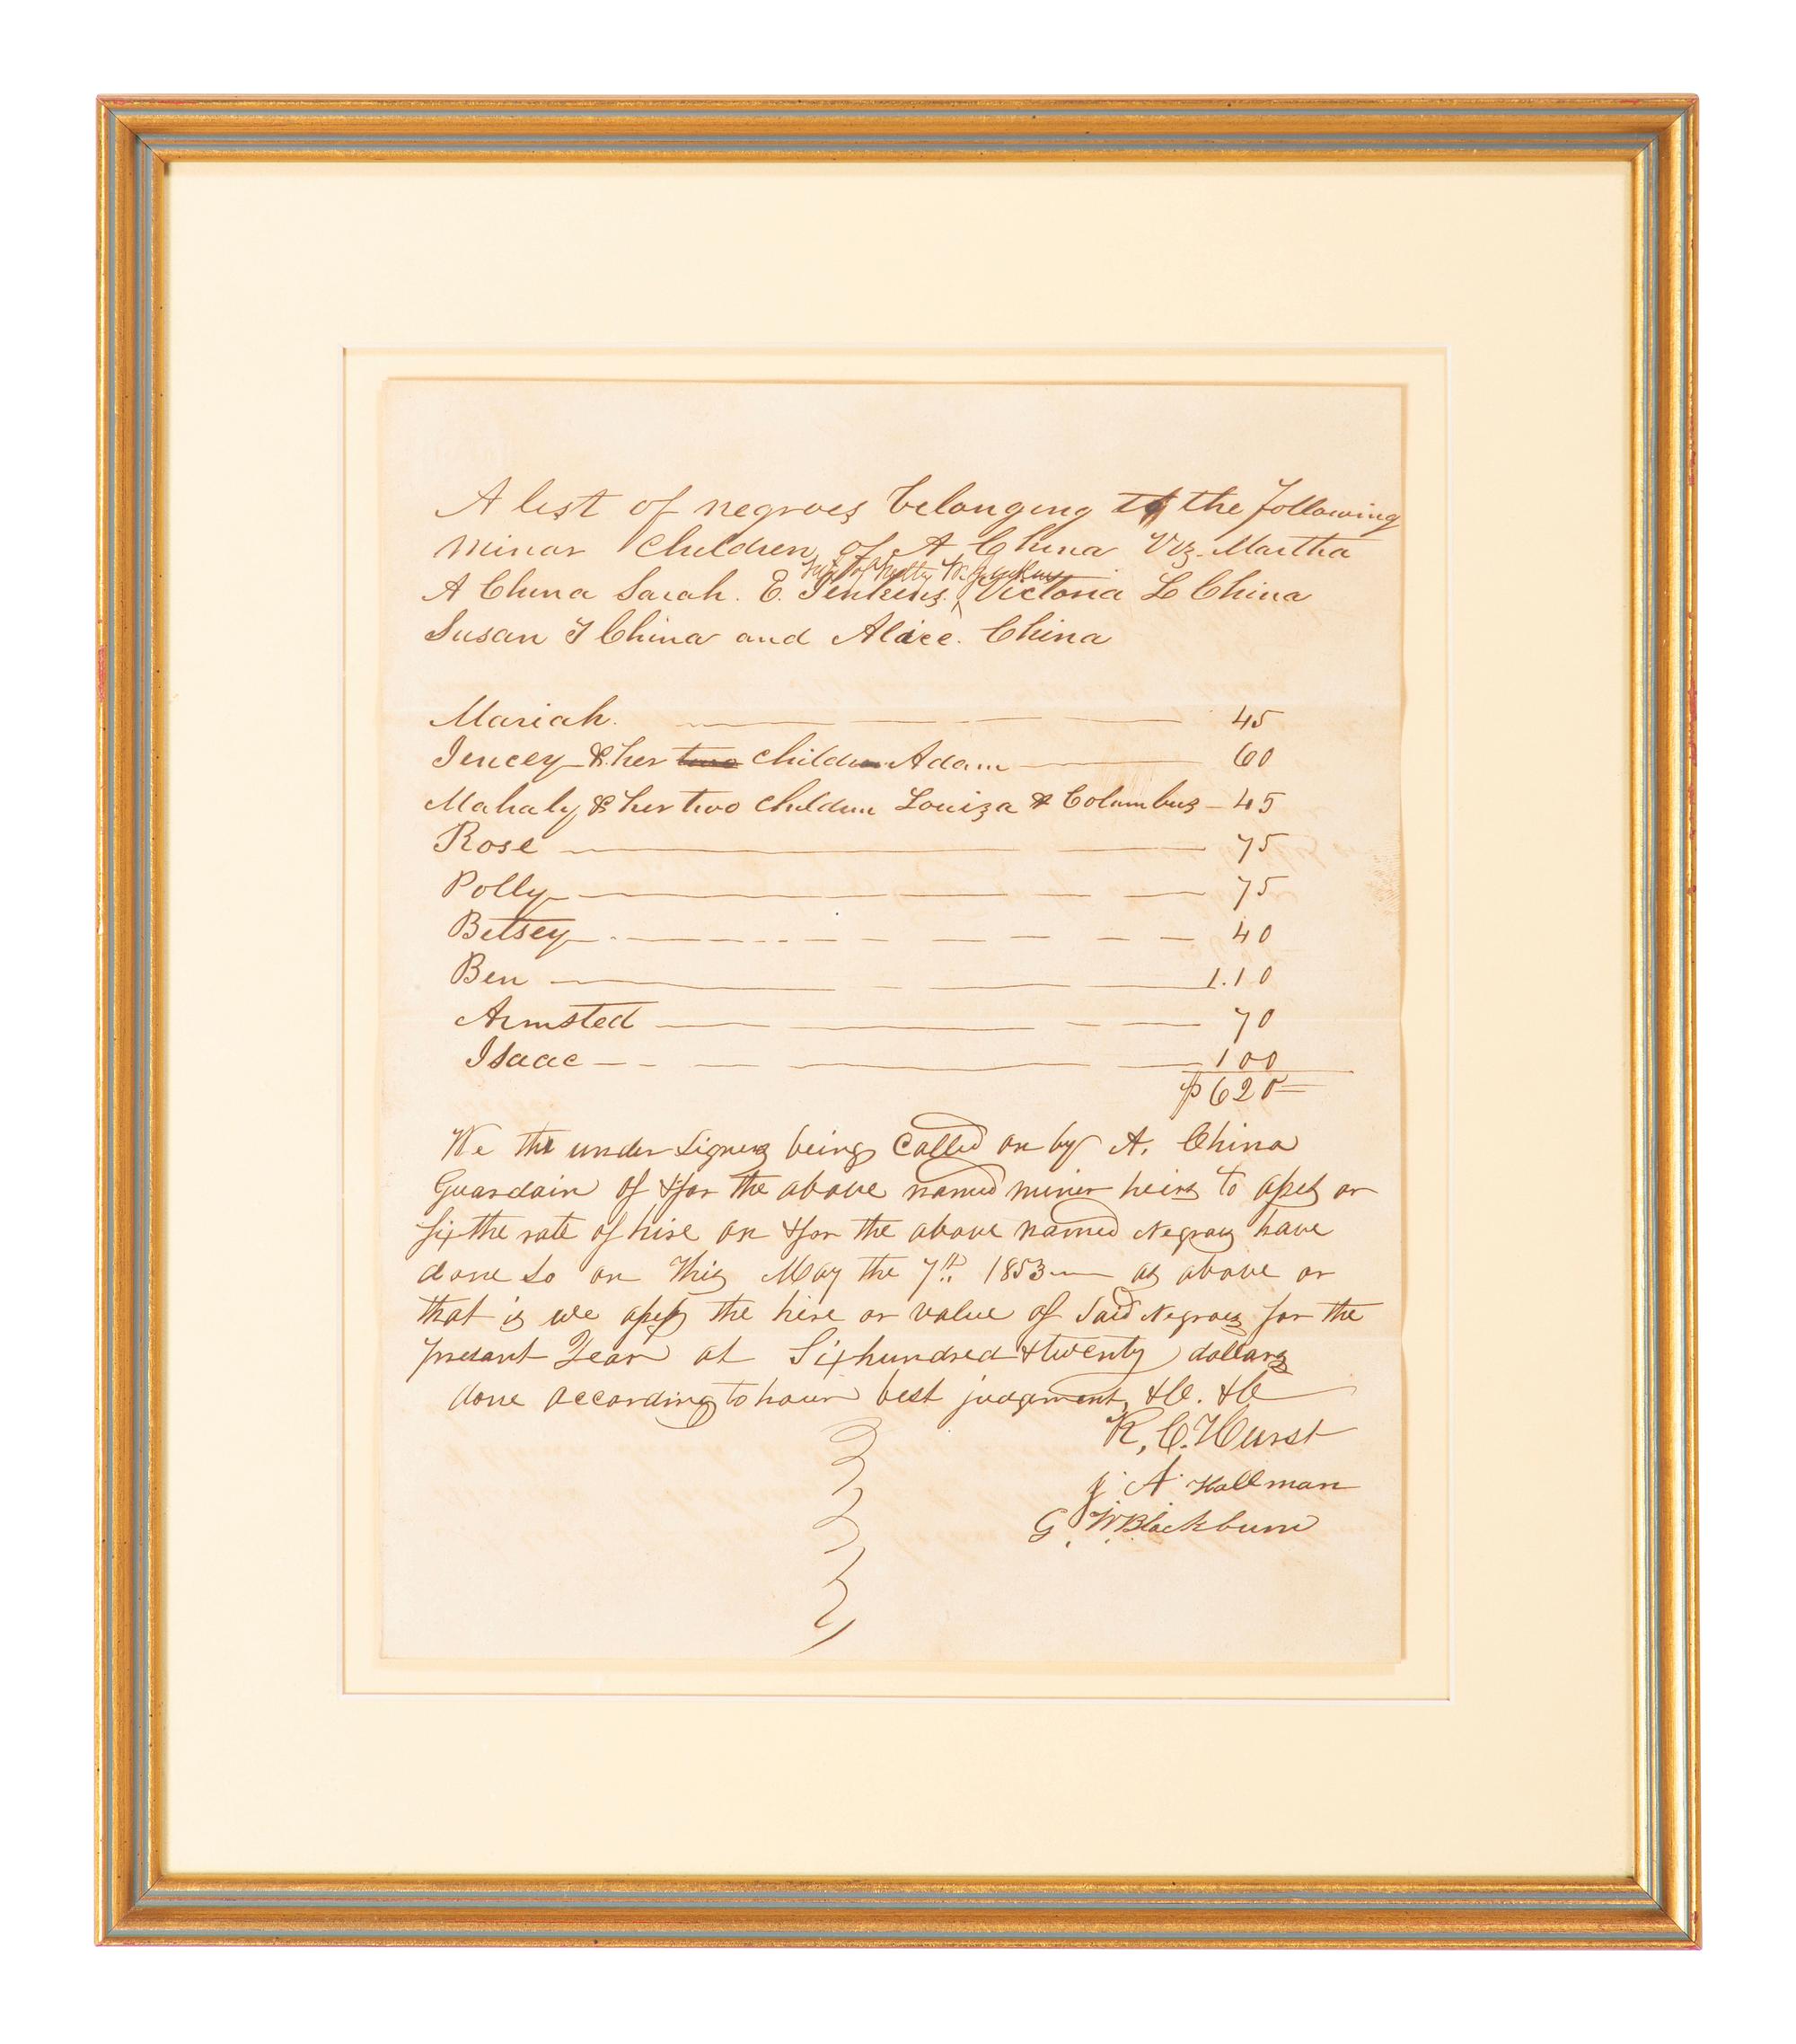 A list of negroes belonging to the following
minor children of A China Viz. Martha
wife of W. Jenkins
A China Sarah. E. Jenkins. ^ Victoria L China
Susan T China and Alice. China
Mariah. 45
Jencey & her two children Adam 60
Mahaly & her two children Louiza & Columbus 45
Rose 75
Polly 75
Betsey 40
Ben 1.10
Armsted 70
Isaac 100
$620
We the under Signers being Called on by A. China
Guardain of & for the above named miner heirs to asses or
fix the rate of hire on & for the above named Negroes have
done so on this May the 7th 1853 as above or
that is we asses the hire or value of Said Negroes for the
presant Year at Six hundred & twenty dollars
done according to hour best judgment, &C. &C
R, C. Hurst
J A Hallman
G. W. Blackburn